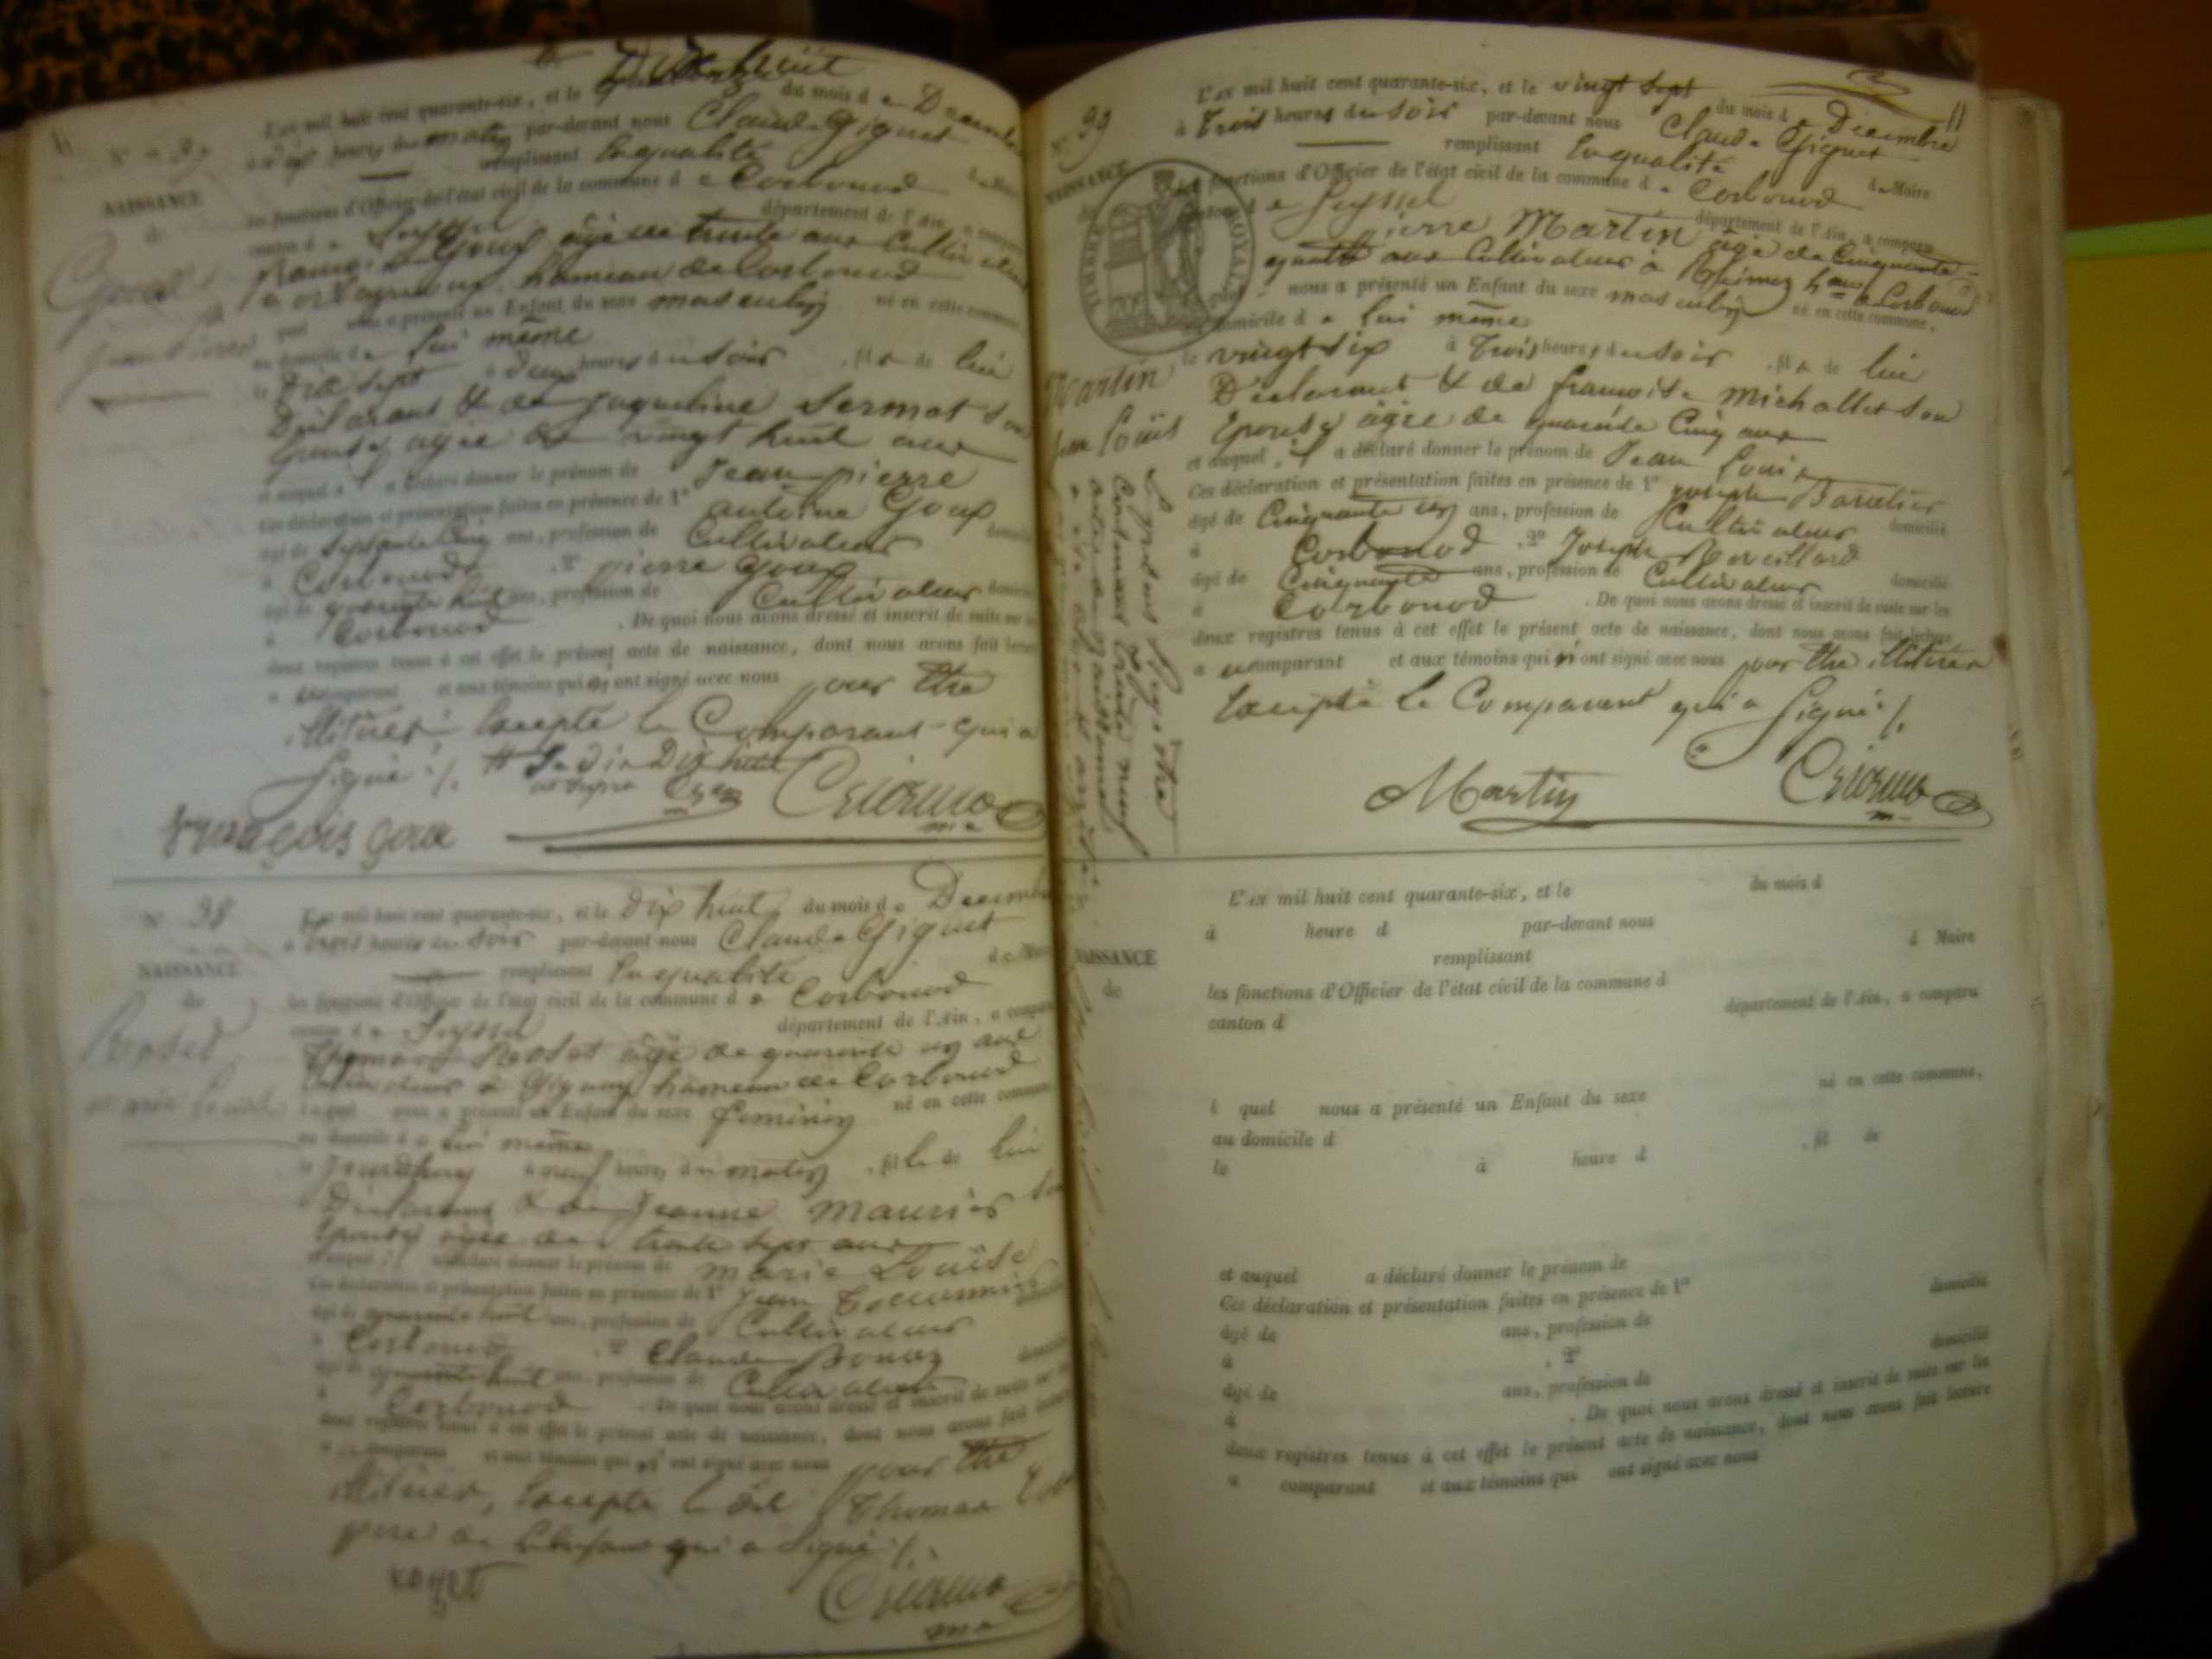 Dix huit
L'an mil huit cent quarante-six, et le du mois de Décembre
N° 37
à dix heures du matin par-devant nous Claude Giguet
remplissant En qualité de Maire
NAISSANCE
de
les fonctions d'Officier de l'état civil de la commune de Corbonod
canton de Seyssel département de l'Ain, a comparu
françois Goux âgé de trente ans Cultivateur
à hameau de Corbonod
Goux
jean pierre
quel nous a présenté un Enfant du sexe masculin né en cette commune,
au domicile de lui même
le Dix sept à heures du soir , fils de lui
Déclarant & de jaqueline Sermet son
Epouse agée de vingt huit ans
et auquel il a déclaré donner le prénom de Jean pierre
Ces déclaration et présentation faites en présence de 1° antoine Goux
âgé de ans, profession de Cultivateur domicilié
à Corbonod , 2° pierre Goux
âgé de quarante huit ans, profession de Cultivateur domicilié
à Corbonod . De quoi nous avons dressé et inscrit de suite sur les
deux registres tenus à cet effet le présent acte de naissance, dont nous avons fait lecture
au comparant et aux témoins qui n'ont signé avec nous pour être
illitérés Excepté le Comparant qui a
Signé ./.
françois goux
N° 38
L'an mil huit cent quarante-six, et le Dix huit du mois de Décembre
à trois heures du soir par-devant nous Claude Giguet
remplissant En qualité de Maire
NAISSANCE
de
les fonctions d'Officier de l'état civil de la commune de Corbonod
canton de Seyssel département de l'Ain, a comparu
Thomas Rosset âgé de quarante un ans
Cultivateur à Gignez hameau de Corbonod
Rosset
marie Louise
Lequel nous a présenté un Enfant du sexe féminin né en cette commune,
au domicile de lui même
le jourdhuy à neuf heures du matin , fille de lui
Déclarant & de Jeanne Maurier son
Epouse agée de trente sept ans
et auquel il a déclaré donner le prénom de marie Louise
Ces déclaration et présentation faites en présence de 1° Jean
âgé de quarante huit ans, profession de Cultivateur domicilié
à Corbonod , 2° Claude
âgé de quarante huit ans, profession de Cultivateur domicilié
à Corbonod . De quoi nous avons dressé et inscrit de suite sur les
deux registres tenus à cet effet le présent acte de naissance, dont nous avons fait lecture
au comparant et aux témoins qui n'ont signé avec nous pour être
illitérés, Excepté le dit Thomas
père de L'enfant qui a Signé ./.
N° 39
L'an mil huit cent quarante-six, et le vingt sept du mois de Décembre
à trois heures du soir par-devant nous Claude Giguet
remplissant En qualité de Maire
NAISSANCE
de
les fonctions d'Officier de l'état civil de la commune de Corbonod
canton de Seyssel département de l'Ain, a comparu
TIMBRE ROYAL
pierre Martin âgé de Cinquante
quatre ans Cultivateur à hau de Corbonod
lequel nous a présenté un Enfant du sexe masculin né en cette commune,
au domicile de lui même
le vingt six à Trois heures du soir , fils de lui
Martin
Jean Loüis
Déclarant & de françoise michallet son
Epouse âgée de quarante Cinq ans
et auquel il a déclaré donner le prénom de Jean Louis
Ces déclaration et présentation faites en présence de 1° joseph
âgé de Cinquante un ans, profession de Cultivateur domicilié
à Corbonod , 2° Joseph
âgé de Cinquante ans, profession de Cultivateur domicilié
à Corbonod . De quoi nous avons dressé et inscrit de suite sur les
deux registres tenus à cet effet le présent acte de naissance, dont nous avons fait lecture
au comparant et aux témoins qui n'ont signé avec nous pour être illitérés
Excepté le Comparant qui a Signé ./.
Martin
Le présent Registre
Contenant trente neuf
actes de naissance
a été clos et arrêté
L'an mil huit cent quarante-six, et le du mois d
à heure d par-devant nous
remplissant d Maire
NAISSANCE
de
les fonctions d'Officier de l'état civil de la commune d
canton d département de l'Ain, a comparu
l quel nous a présenté un Enfant du sexe né en cette commune,
au domicile d
le à heure d , fil de
et auquel a déclaré donner le prénom de
Ces déclaration et présentation faites en présence de 1°
âgé de ans, profession de domicilié
à , 2°
âgé de ans, profession de domicilié
à . De quoi nous avons dressé et inscrit de suite sur les
deux registres tenus à cet effet le présent acte de naissance, dont nous avons fait lecture
a comparant et aux témoins qui ont signé avec nous